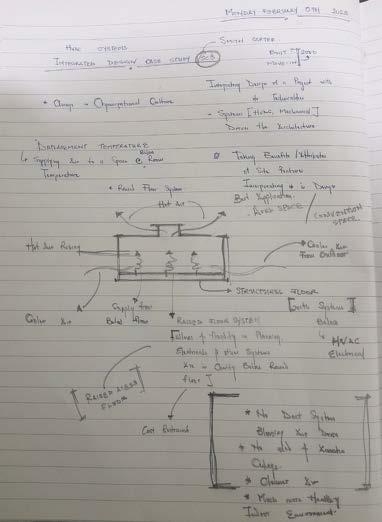 MONDAY FEBRUARY
HVAC SYSTEMS
SMITH CENTER
INTEGRATED DESIGN CASE STUDY
BUILT 2000
MOVE-IN
Integrating Design of a Project with
* Change in Organizational Culture
- Systems [HVAC, Mechanical]
Driven the Architecture
DISPLACEMENT TEMPERATURE
Supplying Air to a Space @ Below Room
Temperature
Taking Benefits/Attributes
of Site Features
Incorporating in Design
Best Application
- OPEN SPACE
CONVENTION SPACE
* Raised Floor System
Hot Air
Hot Air Rising
Cooler Air
From Outdoor
STRUCTURAL FLOOR
Cooler Air
Supply from
Below floor
RAISED FLOOR SYSTEM
Systems
Below
HVAC
Electrical
[Allows flexibility in Planning
Electricals & other Systems
Are in Cavity Below Raised
floor]
[RAISED ACCESS
FLOOR]
Cost Restraint
* No Duct System
Blowing Air Down
* No
* Cleaner Air
* Much more Healthy
Indoor Environment